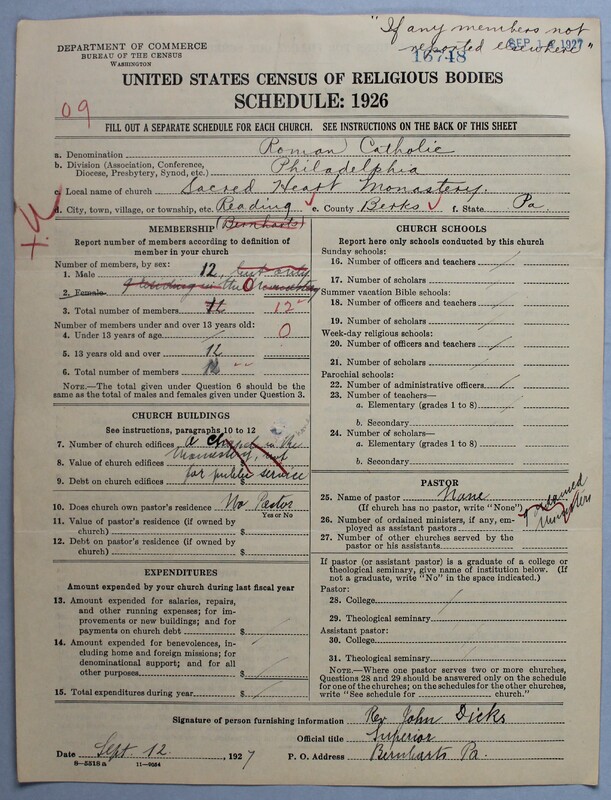 "If any members not
reported elsewhere"
DEPARTMENT OF COMMERCE
BUREAU OF THE CENSUS
WASHINGTON
SEP 1 1927
16748
UNITED STATES CENSUS OF RELIGIOUS BODIES
SCHEDULE: 1926
09
FILL OUT A SEPARATE SCHEDULE FOR EACH CHURCH. SEE INSTRUCTIONS ON THE BACK OF THIS SHEET
a. Denomination Roman Catholic
b. Division (Association, Conference, Diocese, Presbytery, Synod, etc.) Philadelphia
c. Local name of church Sacred Heart Monastery.
d. City, town, village, or township, etc. Reading e. County Berks f. State Pa.
(Bernharts)
MEMBERSHIP
Report number of members according to definition of
member in your church
Number of members, by sex:
1. Male 12,
2. Female in the 0
3. Total number of members 12
Number of members under and over 13 years old:
4. Under 13 years of age 0
5. 13 years old and over 12
6. Total number of members
NOTE.—The total given under Question 6 should be the
same as the total of males and females given under Question 3.
CHURCH BUILDINGS
See instructions, paragraphs 10 to 12
7. Number of church edifices A chapel in the
8. Value of church edifices monastery, not
9. Debt on church edifices for public service
10. Does church own pastor's residence? No Pastor
Yes or No
11. Value of pastor's residence (if owned by
church) $
12. Debt on pastor's residence (if owned by
church) $
EXPENDITURES
Amount expended by your church during last fiscal year
13. Amount expended for salaries, repairs,
and other running expenses; for im-
provements or new buildings; and for
payments on church debt $
14. Amount expended for benevolences, in-
cluding home and foreign missions; for
denominational support; and for all
other purposes $
15. Total expenditures during year $
CHURCH SCHOOLS
Report here only schools conducted by this church
Sunday schools:
16. Number of officers and teachers
17. Number of scholars
Summer vacation Bible schools:
18. Number of officers and teachers
19. Number of scholars
Week-day religious schools:
20. Number of officers and teachers
21. Number of scholars
Parochial schools:
22. Number of administrative officers
23. Number of teachers—
a. Elementary (grades 1 to 8)
b. Secondary
24. Number of scholars—
a. Elementary (grades 1 to 8)
b. Secondary
PASTOR
25. Name of pastor None
(If church has no pastor, write "None")
26. Number of ordained ministers, if any, em-
ployed as assistant pastors
9 ordained
ministers
27. Number of other churches served by the
pastor or his assistants
If pastor (or assistant pastor) is a graduate of a college or
theological seminary, give name of institution below. (If
not a graduate, write "No" in the space indicated.)
Pastor:
28. College
29. Theological seminary
Assistant pastor:
30. College
31. Theological seminary
NOTE.—Where one pastor serves two or more churches,
Questions 28 and 29 should be answered only on the schedule
for one of the churches; on the schedules for the other churches,
write "See schedule for church."
Signature of person furnishing information Rev John Dicks
Official title Superior
Date Sept. 12. , 1927 P. O. Address Bernharts Pa.
8—5318a 11—9054